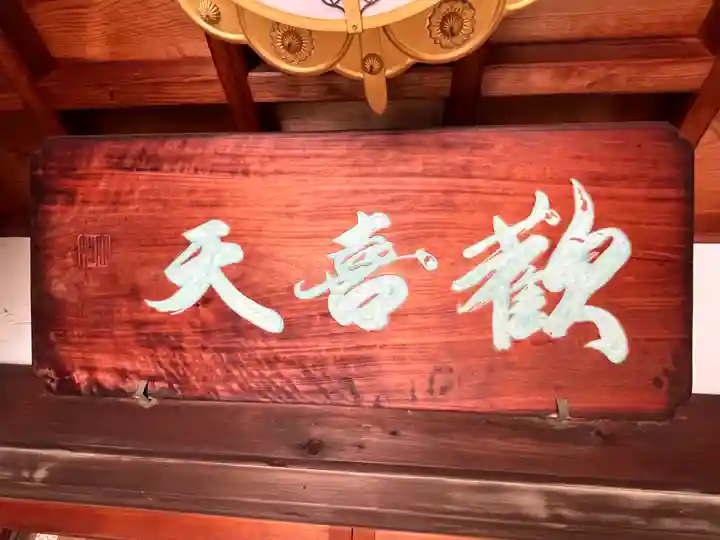 歡喜天